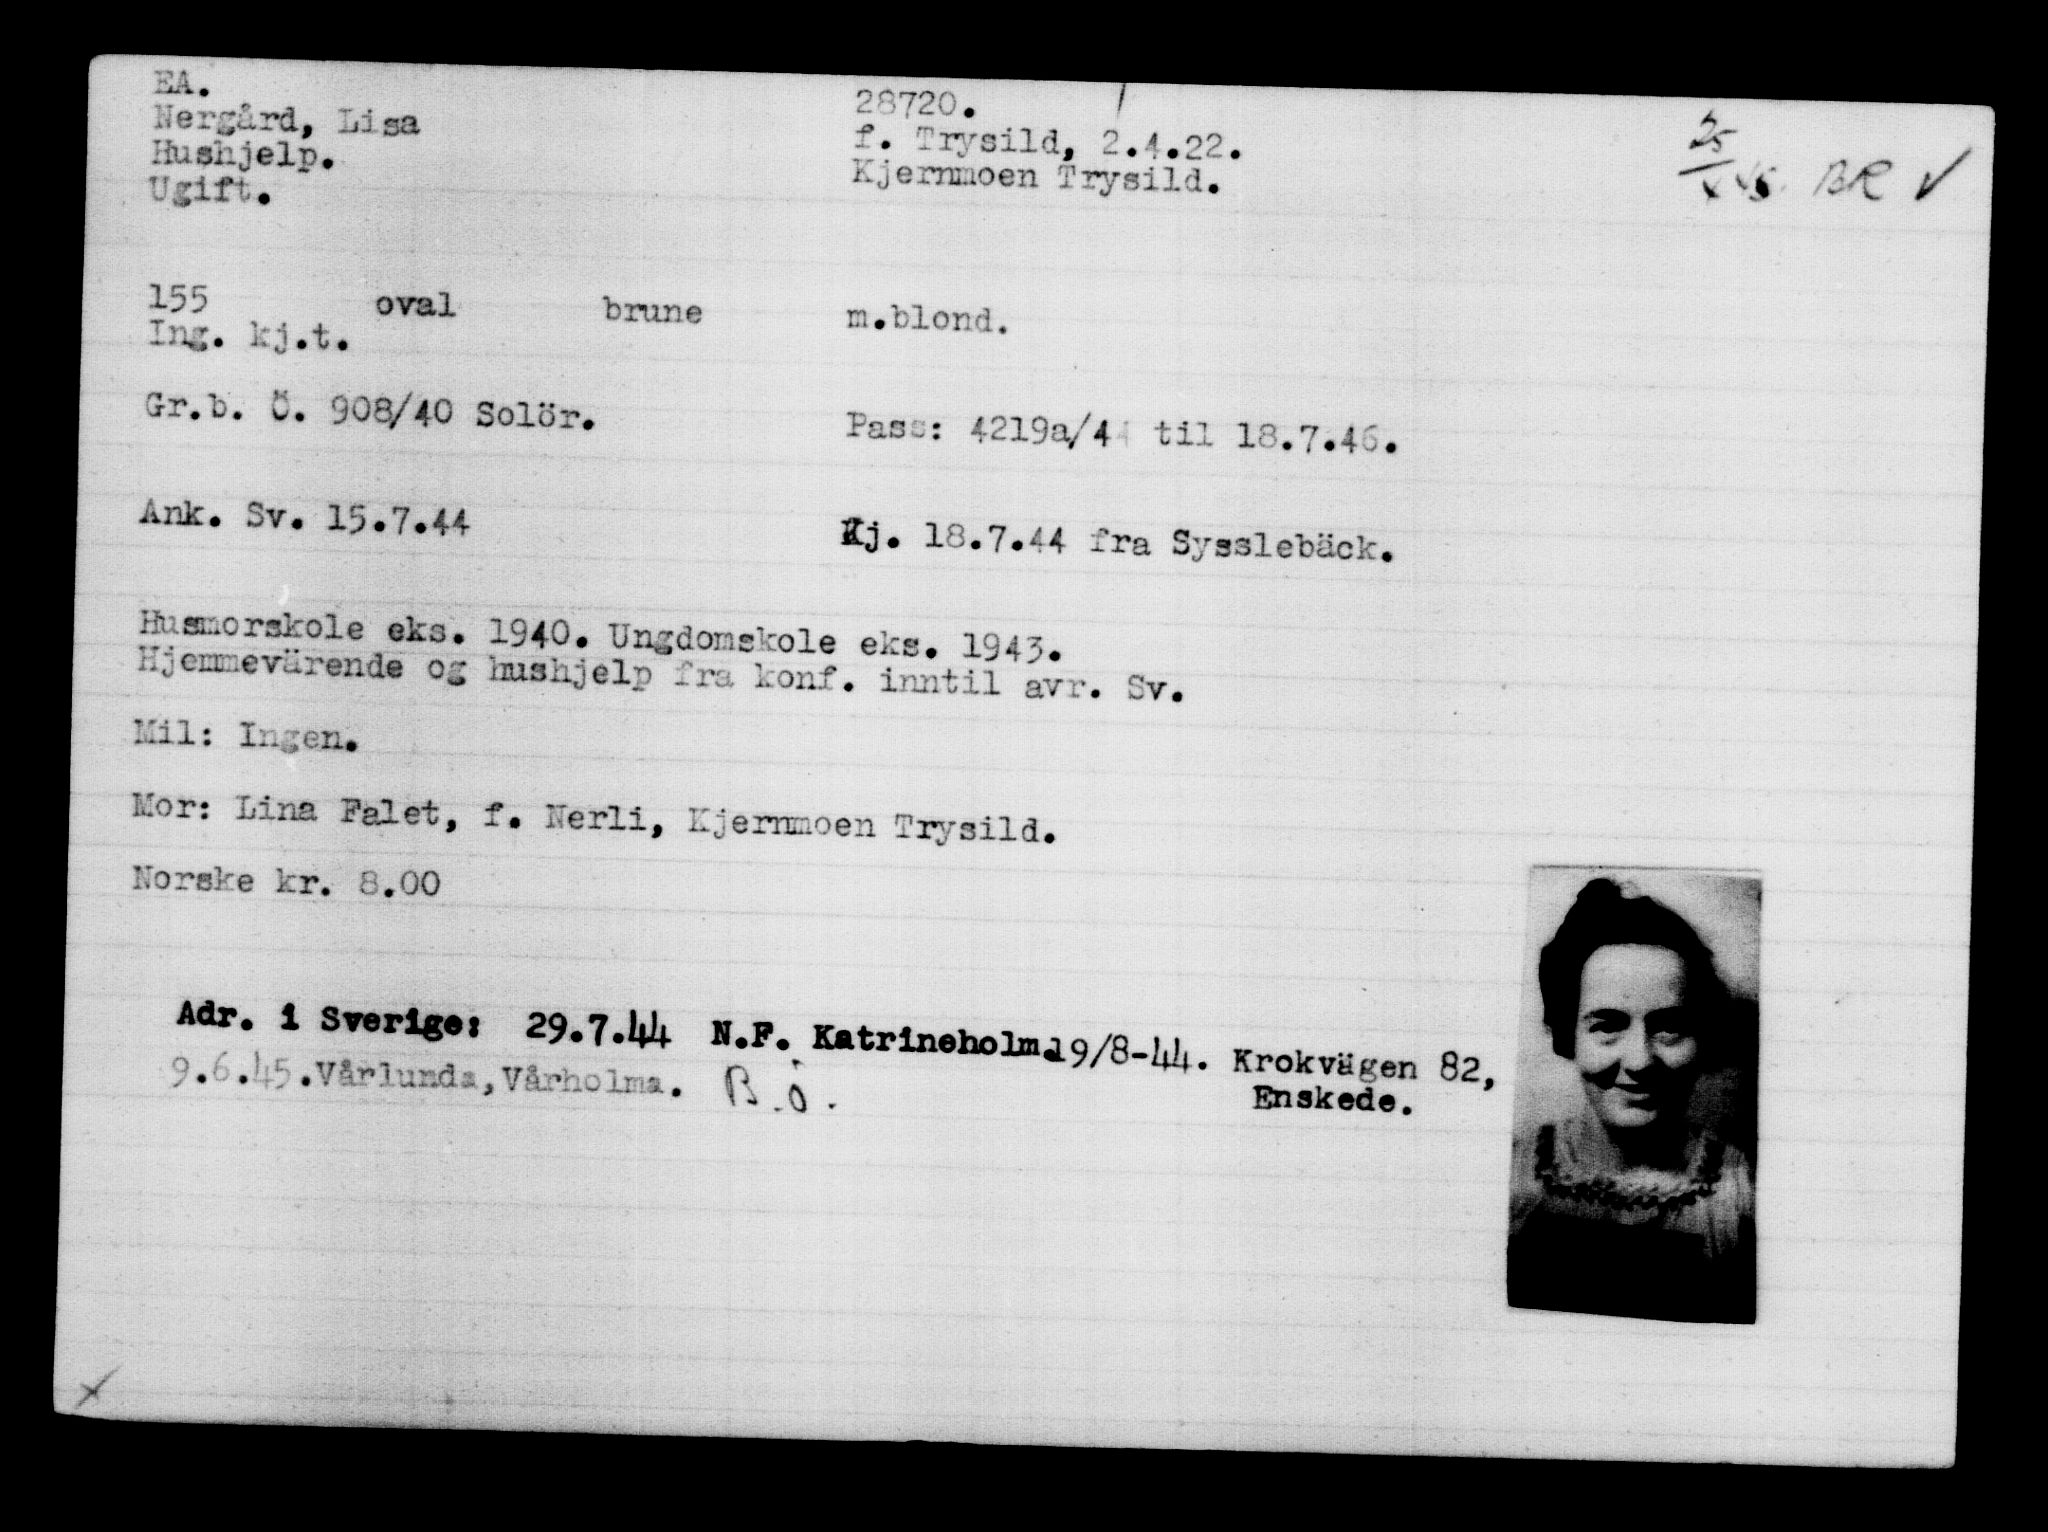 EA. 28720.
Nergård, Lisa f. Trysild, 2.4.22.
Hushjelp. Kjernmoen Trysild.
Ugift.
25/x 45. BR ✓
155 oval brune m.blond.
Ing. kj.t.
Gr.b. Ö. 908/40 Solör. Pass: 4219a/44 til 18.7.46.
Ank. Sv. 15.7.44 Kj. 18.7.44 fra Sysslebäck.
Husmorskole eks. 1940. Ungdomskole eks. 1943.
Hjemmevärende og hushjelp fra konf. inntil avr. Sv.
Mil: Ingen.
Mor: Lina Falet, f. Nerli, Kjernmoen Trysild.
Norske kr. 8.00
Adr. i Sverige: 29.7.44 N.F. Katrineholm. 19/8-44. Krokvägen 82,
Enskede.
9.6.45.Vårlunda,Vårholma. B.Ö.